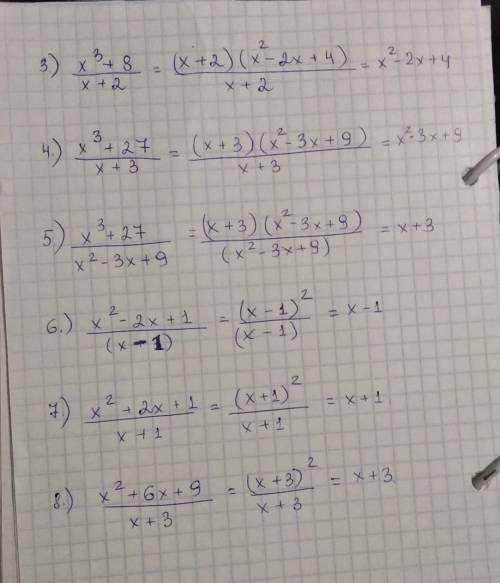 3) (x³ + 8)/(x + 2) = ((x + 2)(x² - 2x + 4))/(x + 2) = x² - 2x + 4
4.) (x³ + 27)/(x + 3) = ((x + 3)(x² - 3x + 9))/(x + 3) = x² - 3x + 9
5.) (x³ + 27)/(x² - 3x + 9) = ((x + 3)(x² - 3x + 9))/((x² - 3x + 9)) = x + 3
6.) (x² - 2x + 1)/((x - 1)) = ((x - 1)²)/((x - 1)) = x - 1
7.) (x² + 2x + 1)/(x + 1) = ((x + 1)²)/(x + 1) = x + 1
8.) (x² + 6x + 9)/(x + 3) = ((x + 3)²)/(x + 3) = x + 3